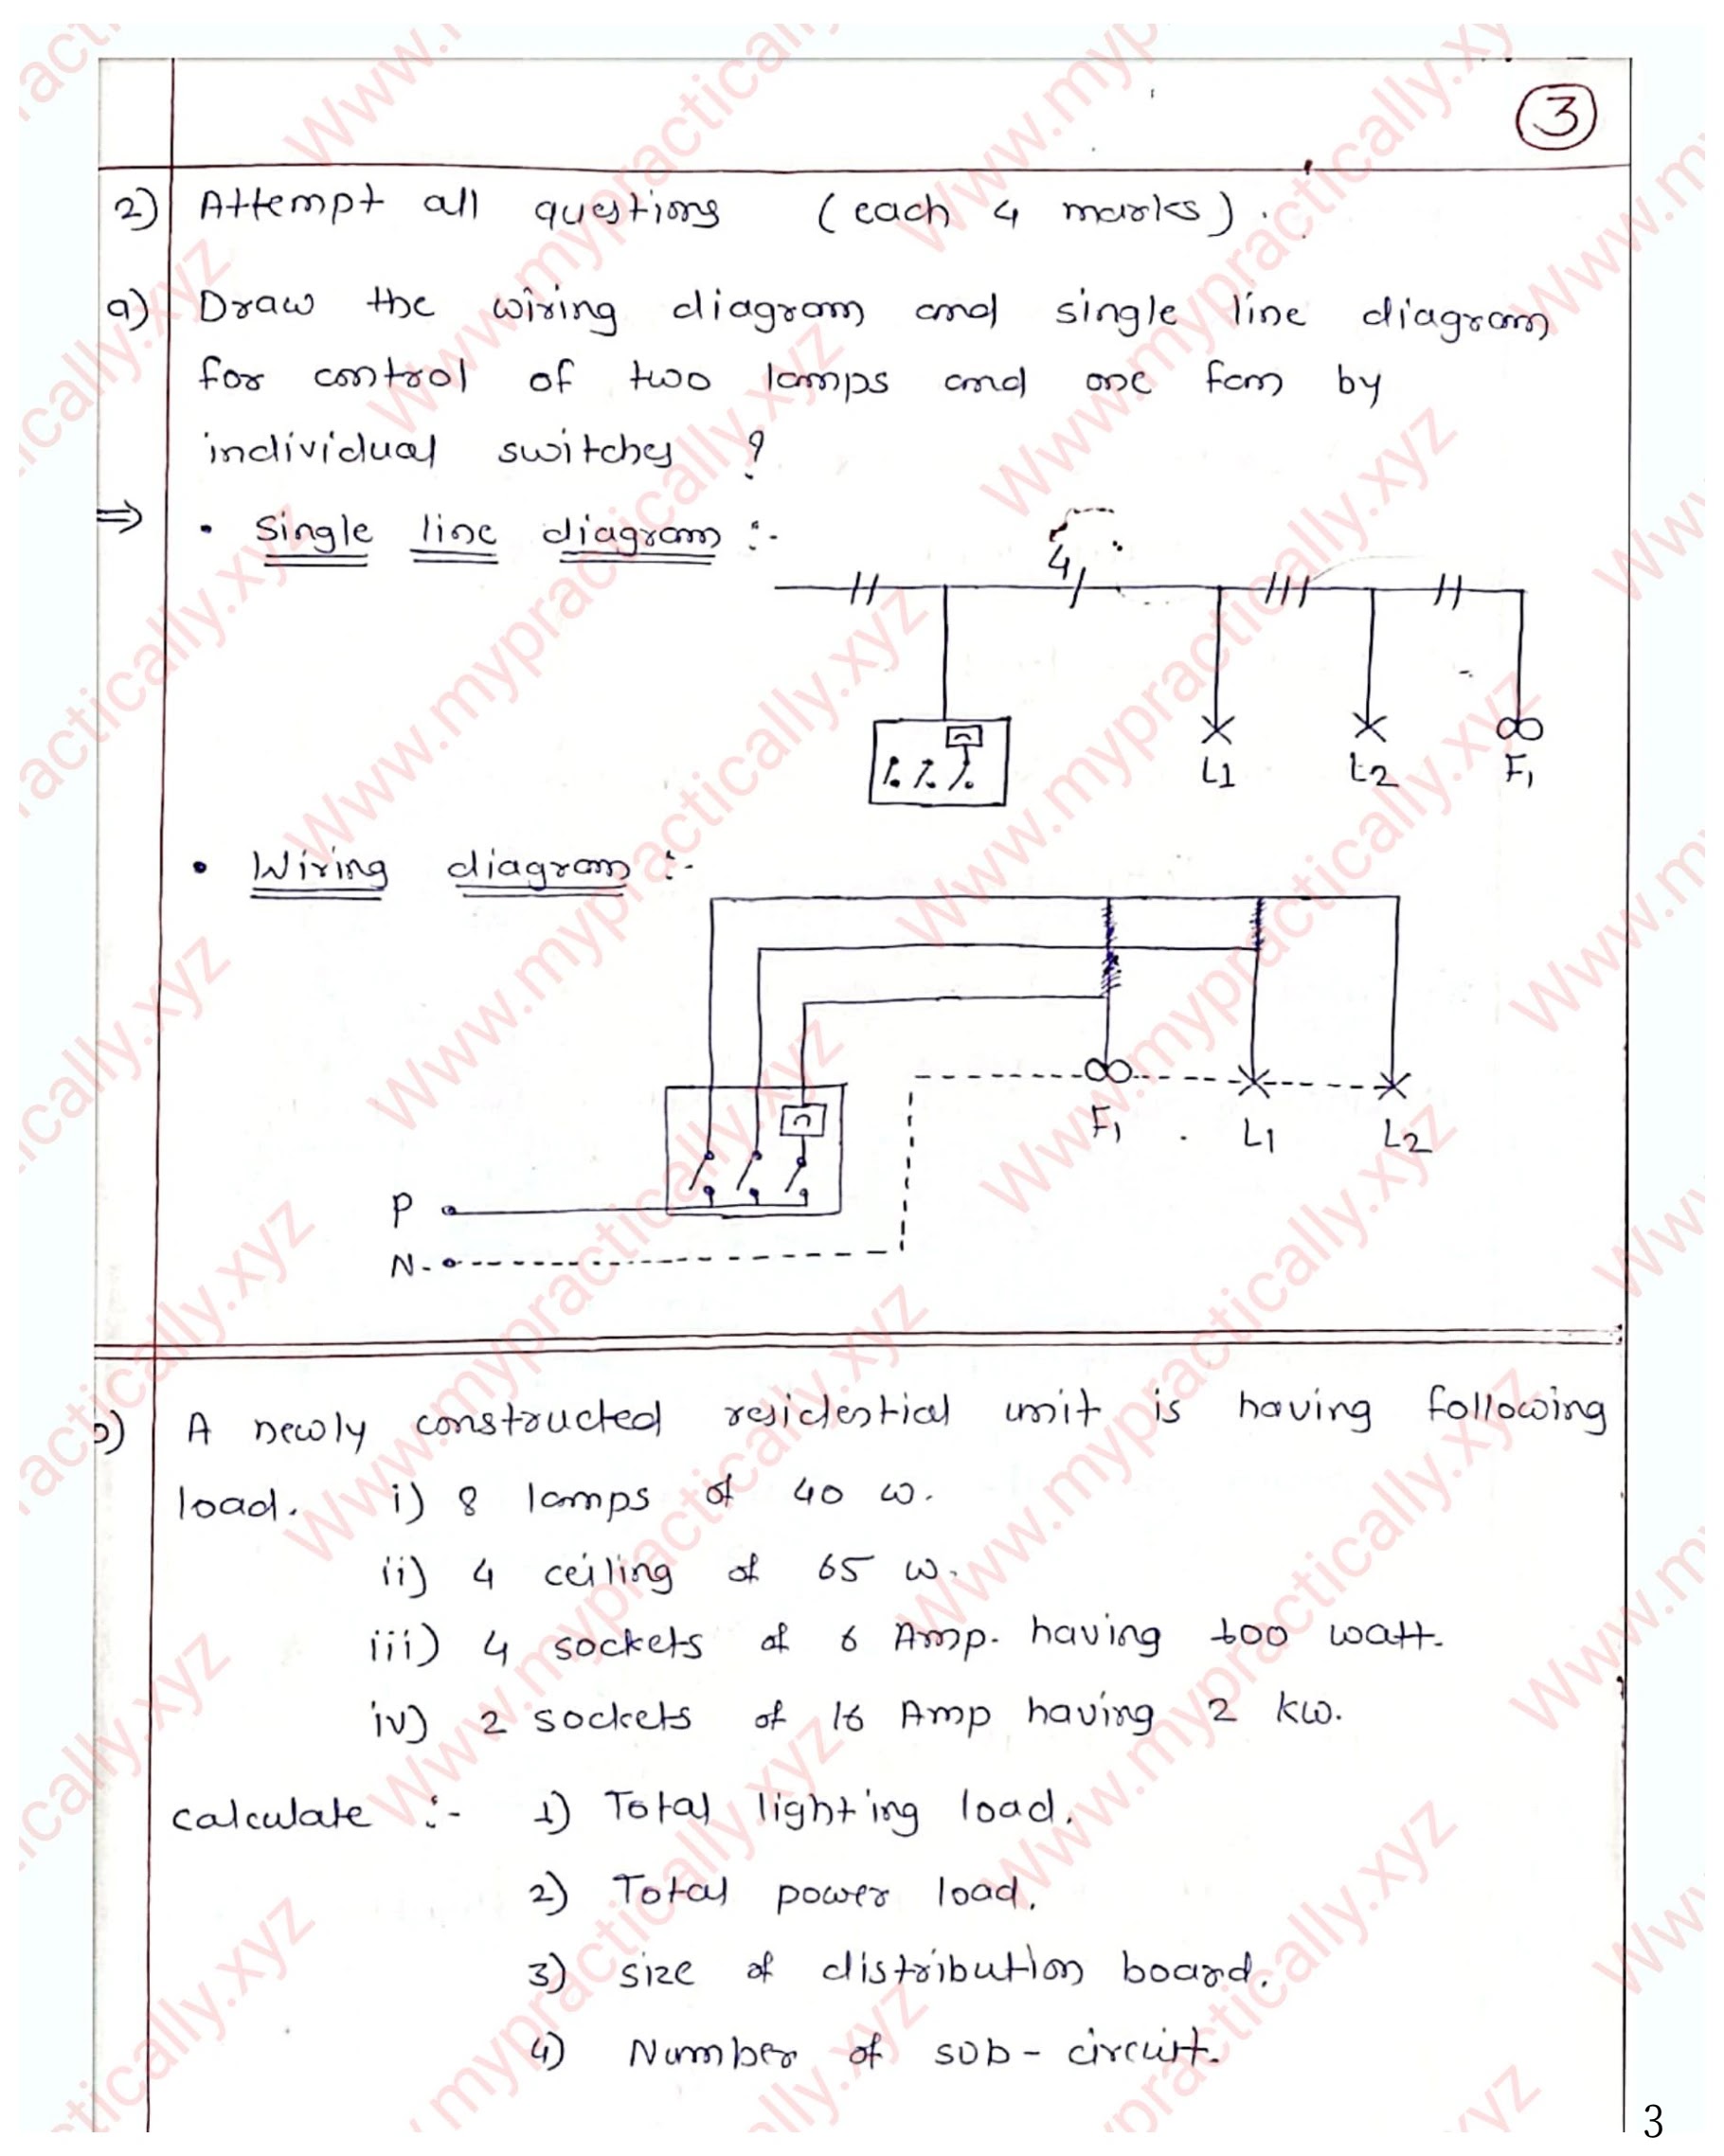 3
2) Attempt all questions (each 4 marks).
a) Draw the wiring diagram and single line diagram
for control of two lamps and one fan by
individual switches ?
⇒ • Single line diagram :-
4
L1 L2 F1
• Wiring diagram :-
F1 L1 L2
P
N
b) A newly constructed residential unit is having following
load. i) 8 lamps of 40 w.
ii) 4 ceiling of 65 w.
iii) 4 sockets of 6 Amp. having 100 watt.
iv) 2 sockets of 16 Amp having 2 kw.
calculate :- 1) Total lighting load.
2) Total power load.
3) size of distribution board.
4) Number of sub-circuit.
3
Www.mypractically.xyz